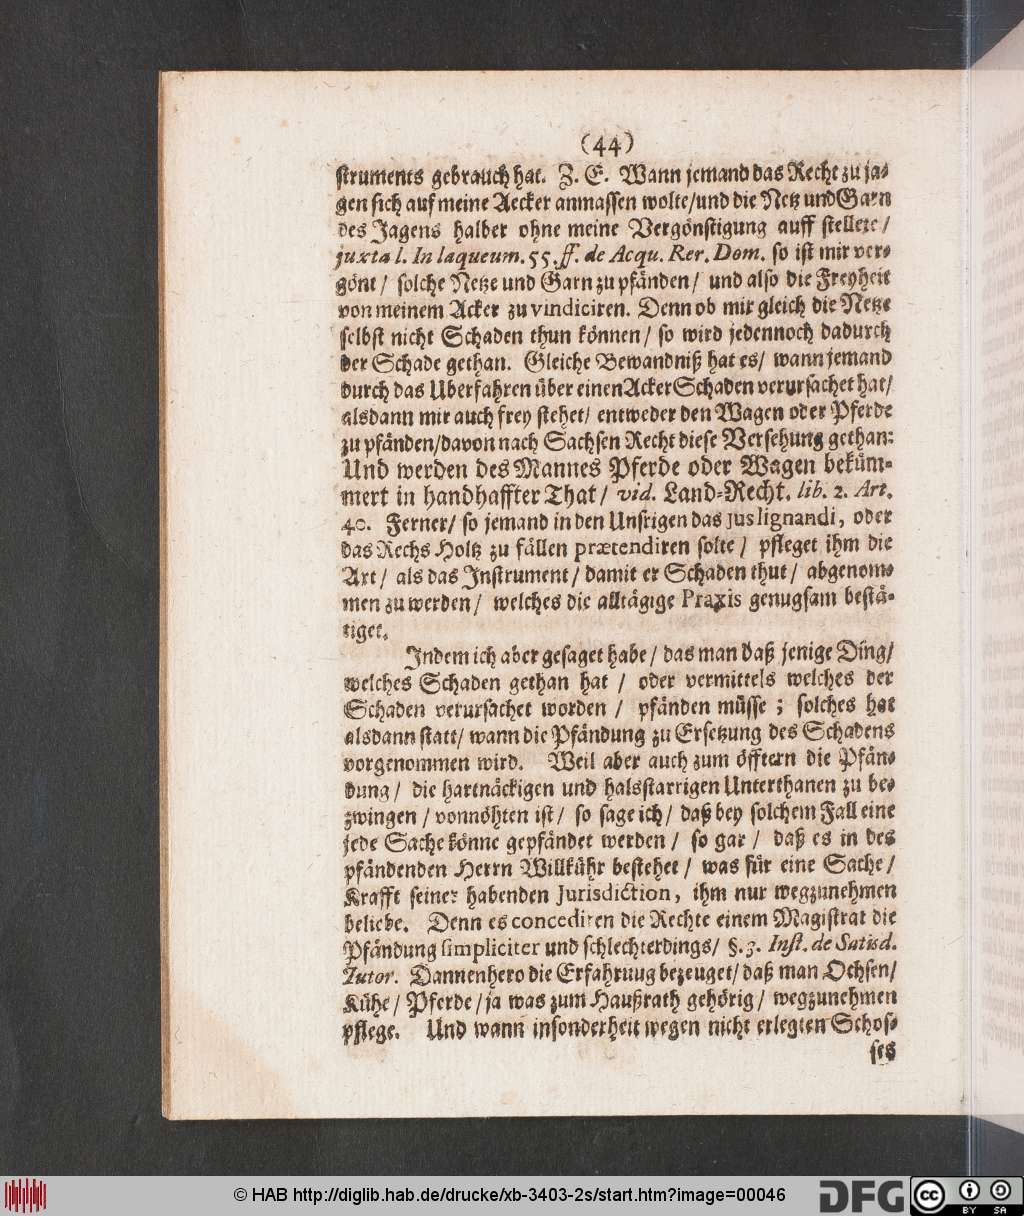 (44)
struments gebrauch hat. Z. E. Wann jemand das Recht zu ja-
gen sich auf meine Aecker anmassen wolte/und die Netz und Garn
des Jagens halber ohne meine Vergönstigung auff stellete/
juxta l. In laqueum. 55. ff. de Acqu. Rer. Dom. so ist mir ver-
gönt/ solche Netze und Garn zu pfänden/ und also die Freyheit
von meinem Acker zu vindiciren. Denn ob mir gleich die Netze
selbst nicht Schaden thun können/ so wird jedennoch dadurch
der Schade gethan. Gleiche Bewandniß hat es/ wann jemand
durch das Uberfahren über einen Acker Schaden verursachet hat/
alsdann mir auch frey stehet/ entweder den Wagen oder Pferde
zu pfänden/davon nach Sachsen Recht diese Versehung gethan:
Und werden des Mannes Pferde oder Wagen beküm-
mert in handhaffter That/ vid. Land-Recht. lib. 2. Art.
40. Ferner/ so jemand in den Unsrigen das jus lignandi, oder
das Rechs Holtz zu fällen prætendiren solte/ pfleget ihm die
Axt/ als das Instrument/ damit er Schaden thut/ abgenom-
men zu werden/ welches die alltägige Praxis genugsam bestä-
tiget.
Indem ich aber gesaget habe/ das man daß jenige Ding/
welches Schaden gethan hat/ oder vermittels welches der
Schaden verursachet worden/ pfänden müsse; solches hat
alsdann statt/ wann die Pfändung zu Ersetzung des Schadens
vorgenommen wird. Weil aber auch zum öfftern die Pfän-
dung/ die hartnäckigen und halsstarrigen Unterthanen zu be-
zwingen/ vonnöhten ist/ so sage ich/ daß bey solchem Fall eine
jede Sache könne gepfändet werden/ so gar/ daß es in des
pfändenden Herrn Willkühr bestehet/ was für eine Sache/
Krafft seiner habenden Jurisdiction, ihm nur wegzunehmen
beliebe. Denn es concediren die Rechte einem Magistrat die
Pfändung simpliciter und schlechterdings/ §. 3. Inst. de Satisd.
Tutor. Dannenhero die Erfahruug bezeuget/ daß man Ochsen/
Kühe/ Pferde/ ja was zum Haußrath gehörig/ wegzunehmen
pflege. Und wann insonderheit wegen nicht erlegten Schos-
ses
© HAB http://diglib.hab.de/drucke/xb-3403-2s/start.htm?image=00046
DFG
cc BY SA